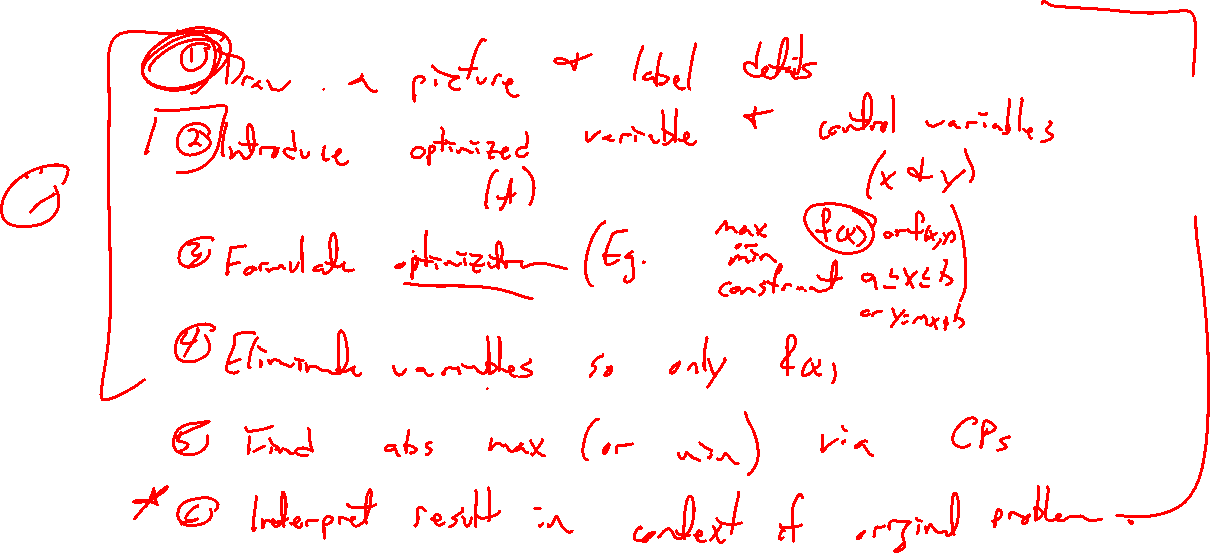 ① Draw a picture & label details
② Introduce optimized variable & control variables
(A) (x & y)
③ Formulate optimization (Eg. max f(x) or f(x,y)
min
constraint a ≤ x ≤ b)
or y=mx+b
④ Eliminate variables so only f(x)
⑤ Find abs max (or min) via CPs
* ⑥ Interpret result in context of original problem.